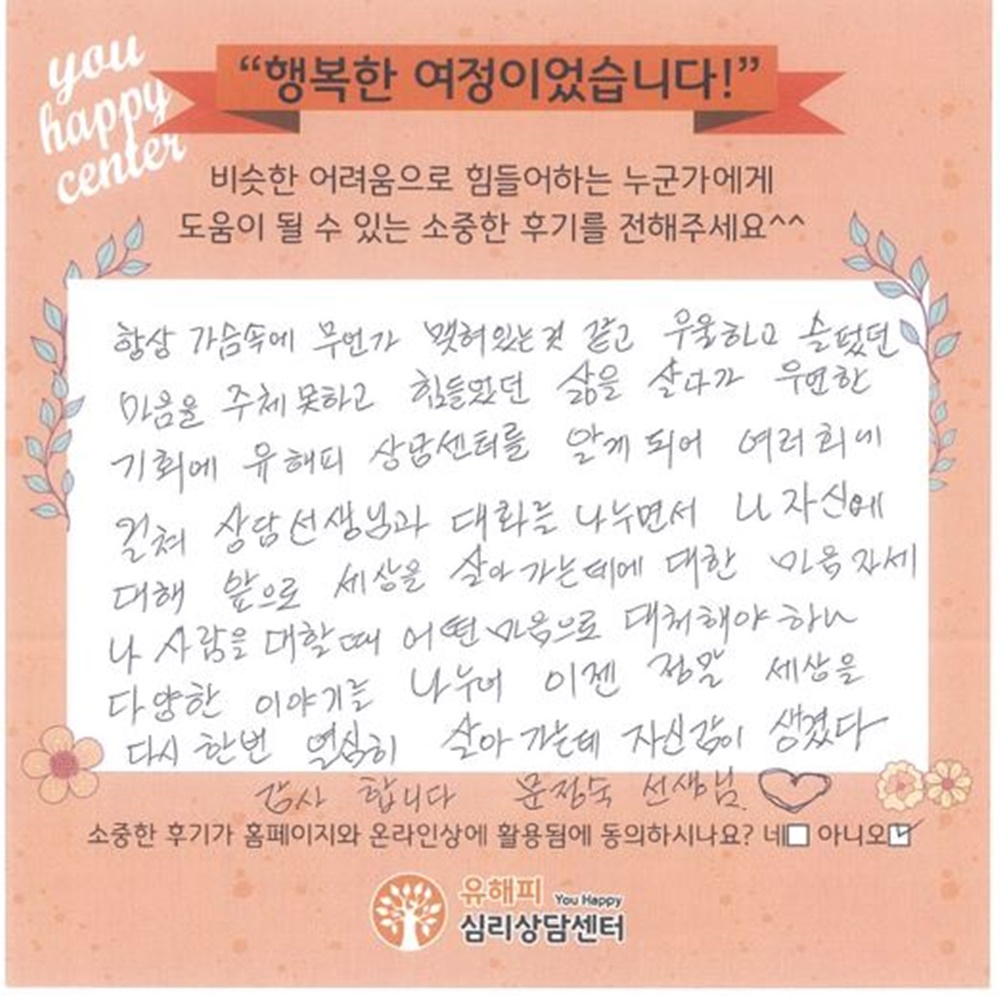 you
happy
center
“행복한 여정이었습니다!”
비슷한 어려움으로 힘들어하는 누군가에게
도움이 될 수 있는 소중한 후기를 전해주세요^^
항상 가슴속에 무언가 맺혀있는것 같고 우울하고 슬펐던
마음을 주체못하고 힘들었던 삶을 살다가 우연한
기회에 유해피 상담센터를 알게 되어 여러회에
걸쳐 상담선생님과 대화를 나누면서 나 자신에
대해 앞으로 세상을 살아가는데에 대한 마음자세
나 사람을 대할때 어떤마음으로 대처해야하나
다양한 이야기를 나누어 이젠 정말 세상을
다시 한번 열심히 살아가는데 자신감이 생겼다
감사 합니다 문정숙 선생님.
소중한 후기가 홈페이지와 온라인상에 활용됨에 동의하시나요? 네 아니오
유해피 You Happy
심리상담센터